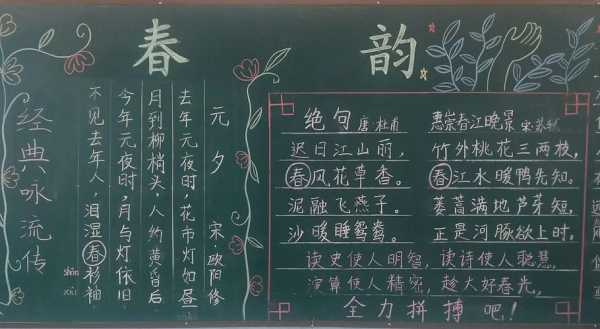 春 韵
经典咏流传
元夕
宋·欧阳修
去年元夜时，花市灯如昼
月到柳梢头，人约黄昏后
今年元夜时，月与灯依旧
不见去年人，泪湿春衫袖
shān
xiù
绝句 唐 杜甫
迟日江山丽，
春风花草香。
泥融飞燕子。
沙暖睡鸳鸯。
惠崇春江晚景 宋 苏轼
竹外桃花三两枝，
春江水暖鸭先知。
蒌蒿满地芦芽短，
正是河豚欲上时。
读史使人明智，读诗使人聪慧，
演算使人精密，趁大好春光，
全力拼搏吧！